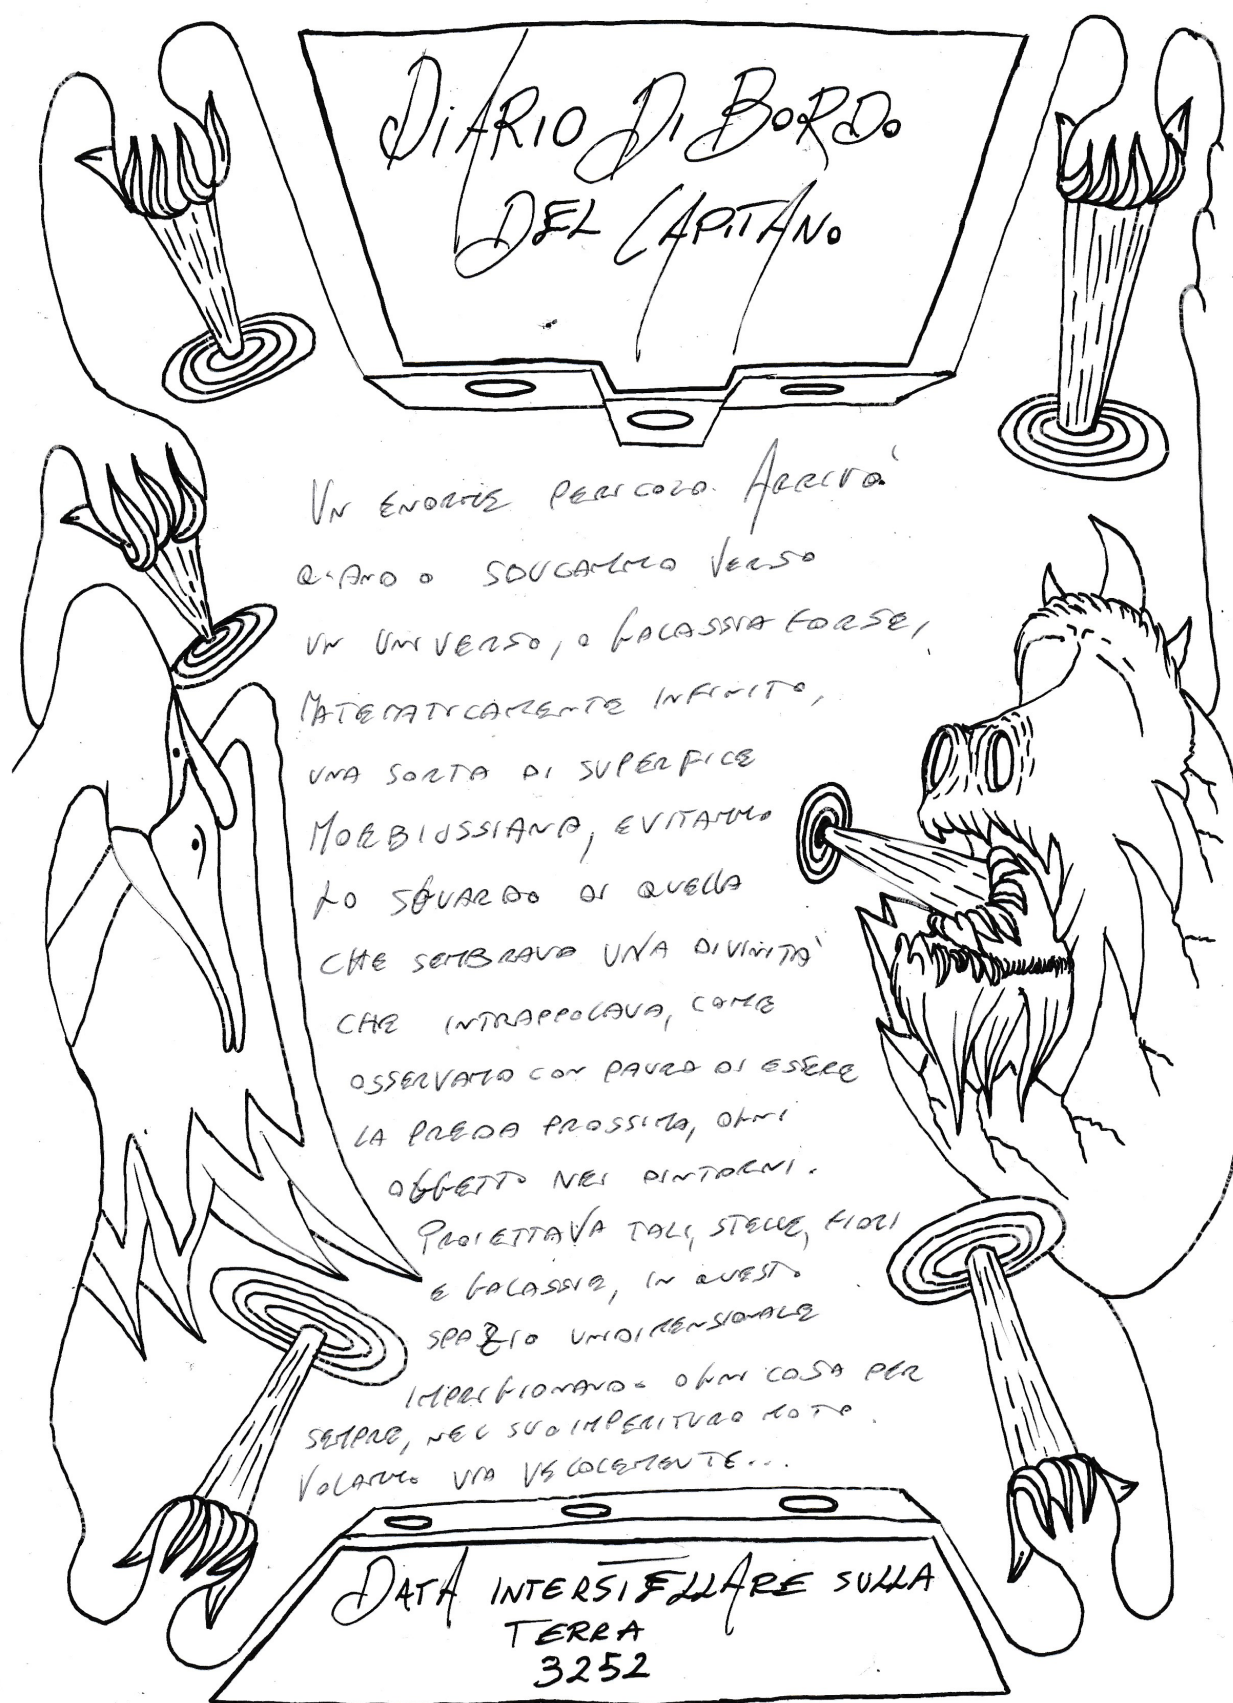 DIARIO DI BORDO
DEL CAPITANO
UN ENORME PERICOLO ARRIVÒ
QUANDO SOLCAMMO VERSO
UN UNIVERSO, O GALASSIA FORSE,
MATEMATICAMENTE INFINITO,
UNA SORTA DI SUPERFICE
MORBIUSSIANA, EVITAMMO
LO SGUARDO DI QUELLA
CHE SEMBRAVA UNA DIVINITÀ
CHE INTRAPPOLAVA, COME
OSSERVATO CON PAURA DI ESSERE
LA PREDA PROSSIMA, OGNI
OGGETTO NEI DINTORNI.
PROIETTAVA TALI, STELLE, FIORI
E GALASSIE, IN QUESTO
SPAZIO UNIDIMENSIONALE
IMPRIGIONANDO OGNI COSA PER
SEMPRE, NEL SUO IMPERITURO MOTO.
VOLAMMO VIA VELOCEMENTE...
DATA INTERSTELLARE SULLA
TERRA
3252